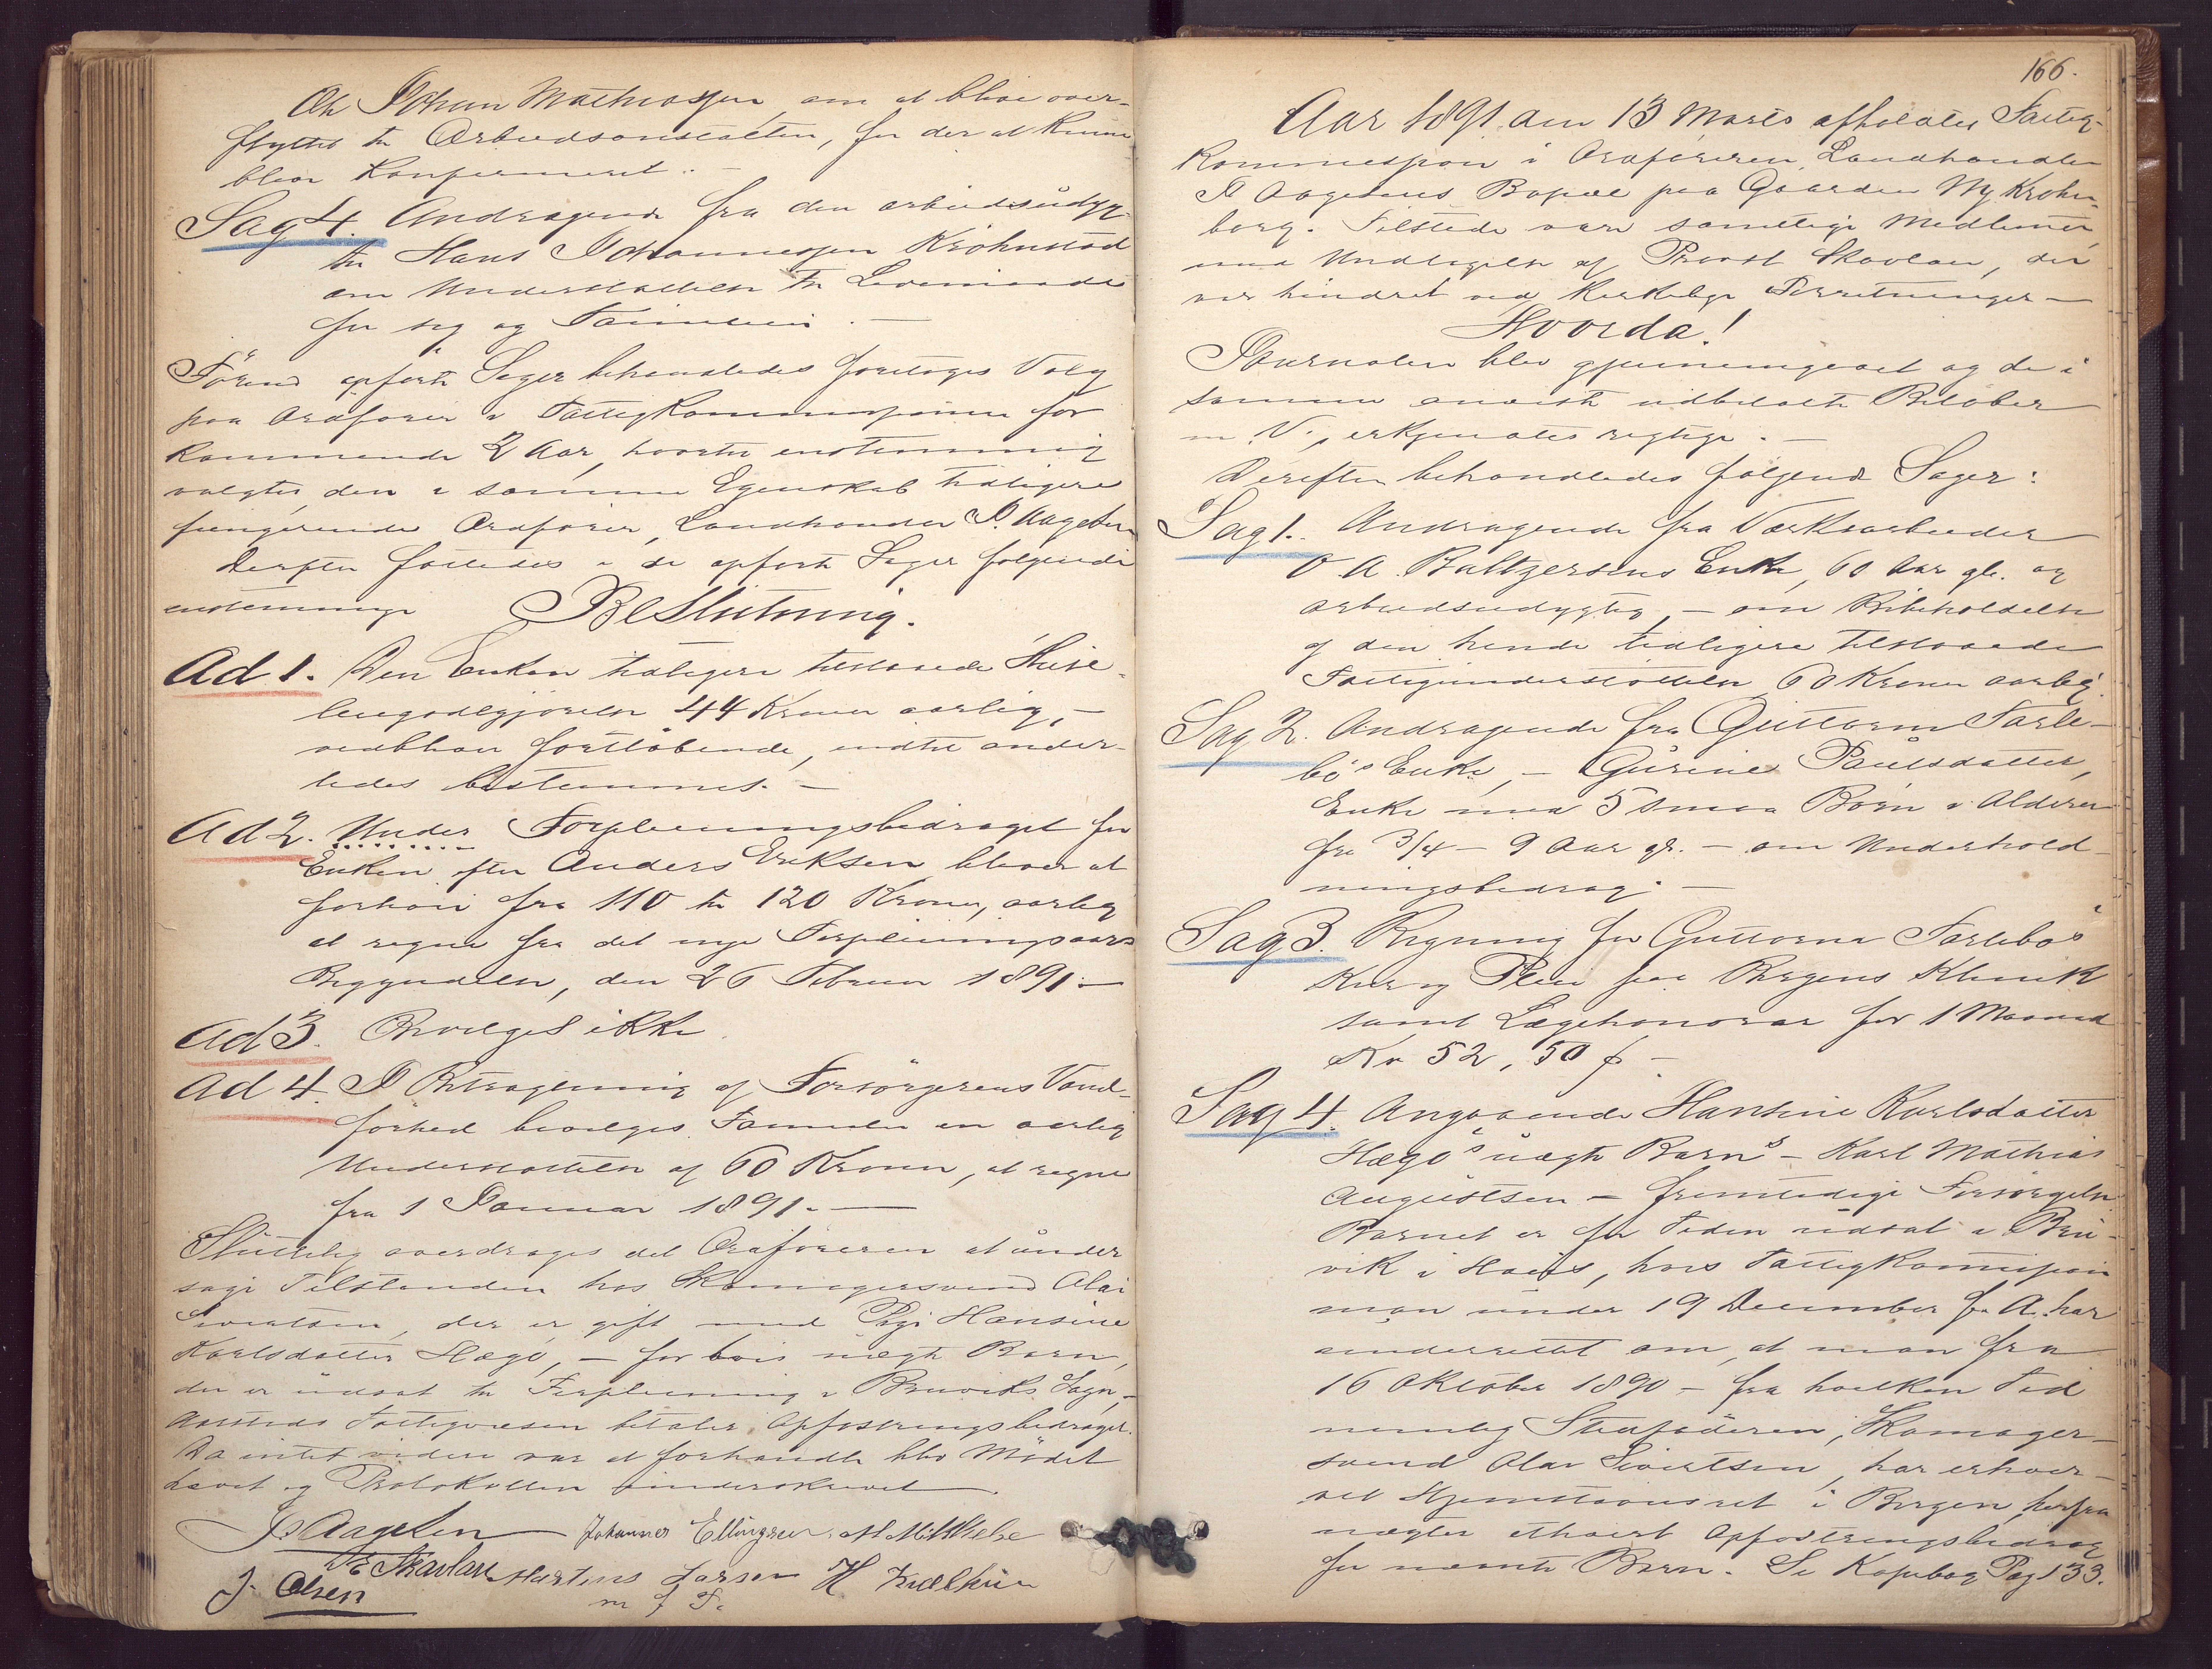 Johan Mathiassen, om at blive over-
flyttet til Arbeidsanstalten, for der at kunne
blive Konfirmeret.
Sag 4. Andragende fra den arbeidsudyg-
tige Hans Johannessen Krohnstad
om Understøttelse til Levemaade
for sig og Familien. —
Førend opførte Sager behandledes foretoges Valg
paa Ordfører i Fattigkommissionen for
kommende 2 Aar, hvortil enstemmig
valgtes den i samme Egenskab tidligere
fungerende Ordfører, Landhandler J. Aagesen
Derefter fattedes i de opførte Sager følgende
enstemmige Beslutning.
Ad 1. Den Enken tidligere tilstaaede Huse-
leiegodtgjørelse 44 Kroner aarlig, —
vedbliver fortløbende, indtil ander-
ledes bestemmes. —
Ad 2. Under Forpleiningsbidraget for
Enken efter Anders Eriksen bliver at
forhøie fra 110 til 120 Kroner, aarlig
at regne fra det nye Forpleiningsaars
Begyndelse, den 26 Februar 1891. —
Ad 3. Bevilges ikke.
Ad 4. I Betragtning af Forsørgerens Vand-
førhed bevilges Familien en aarlig
Understøttelse af 60 Kroner, at regne
fra 1 Januar 1891. —
Sluttelig overdrages det Ordføreren at under-
søge Tilstanden hos Skomagersvend Olai
Sivertsen, der er gift med Pige Hansine
Karlsdatter Hægø, — for hvis uægte Barn,
der er udsat til Forpleining i Bruviks Sogn, —
Aarstads Fattigvæsen betaler Opfostringsbidraget.
Da intet videre var at forhandle blev Mødet
hævet og Protokollen underskrevet.
J. Aagesen Johannes Ellingsen
Skavlan Martinus Larsen H
J. Olsen m f P.
166.
Aar 1891 den 13 Marts afholdtes Fattig-
kommission i Ordføreren, Landhandler
J Aagesens Bopæl paa Gaarden Ny Krohn-
borg. Tilstede vare samtlige Medlemer
med Undtagelse af Provst Skavlan, der
var hindret ved kirkelige Forretninger —
Hvorda!
Journalen blev gjennemgaaet og de i
samme anviste udbetalte Beløber
m. V., erkjendtes rigtige. —
Derefter behandledes følgende Sager:
Sag 1. Andragende fra Værksarbeider
O. A. Baltzersens Enke, 60 Aar gl. og
arbeidsudygtig, — om Bibeholdelse
af den hende tidligere tilstaaede
Fattigunderstøttelse 60 Kroner aarlig.
Sag 2. Andragende fra Guttorm Tarle-
bø's Enke, — Gurine Paulsdatter,
Enke med 5 smaa Børn i Alderen
fra 3/4 — 9 Aar gl. — om Underhold-
ningsbidrag. —
Sag 3. Regning for Guttorm Tarlebøs
Kur og Pleie paa Bergens Klinik
samt Lægehonorar for 1 Maaned
Kr 52,50 ø —
Sag 4. Angaaende Hansine Karlsdatter
Hægø's uægte Barn's — Karl Mathias
Augustsen — fremtidige Forsørgelse
Barnet er for Tiden udsat i Bru-
vik i Haus, hvis Fattigkommission
man under 19 December f. A. har
underrettet om, at man fra
16 Oktober 1890 — fra hvilken Tid
nemlig Stedfaderen, Skomager-
svend Olai Sivertsen, har erhver-
vet Hjemstavnsret i Bergen, herfra
nægter ethvert Opfostringsbidrag
for nævnte Barn. Se Kopibog Pag 133.